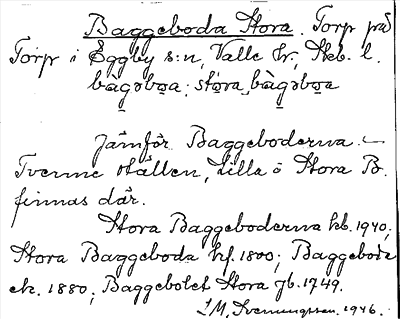 Baggeboda Stora. Torp på
Torp i Eggby s:n, Valle hr, Skb. l.
bàgəboa; stóra bàgəboa
Jämför Baggeboderna. –
Tvenne ställen, Lilla o Stora B.
finnas där.
Stora Baggeboderna kb. 1940;
Stora Baggeboda hf. 1800; Baggeboda
ek. 1880; Baggebolet Stora Jb. 1749.
1946.